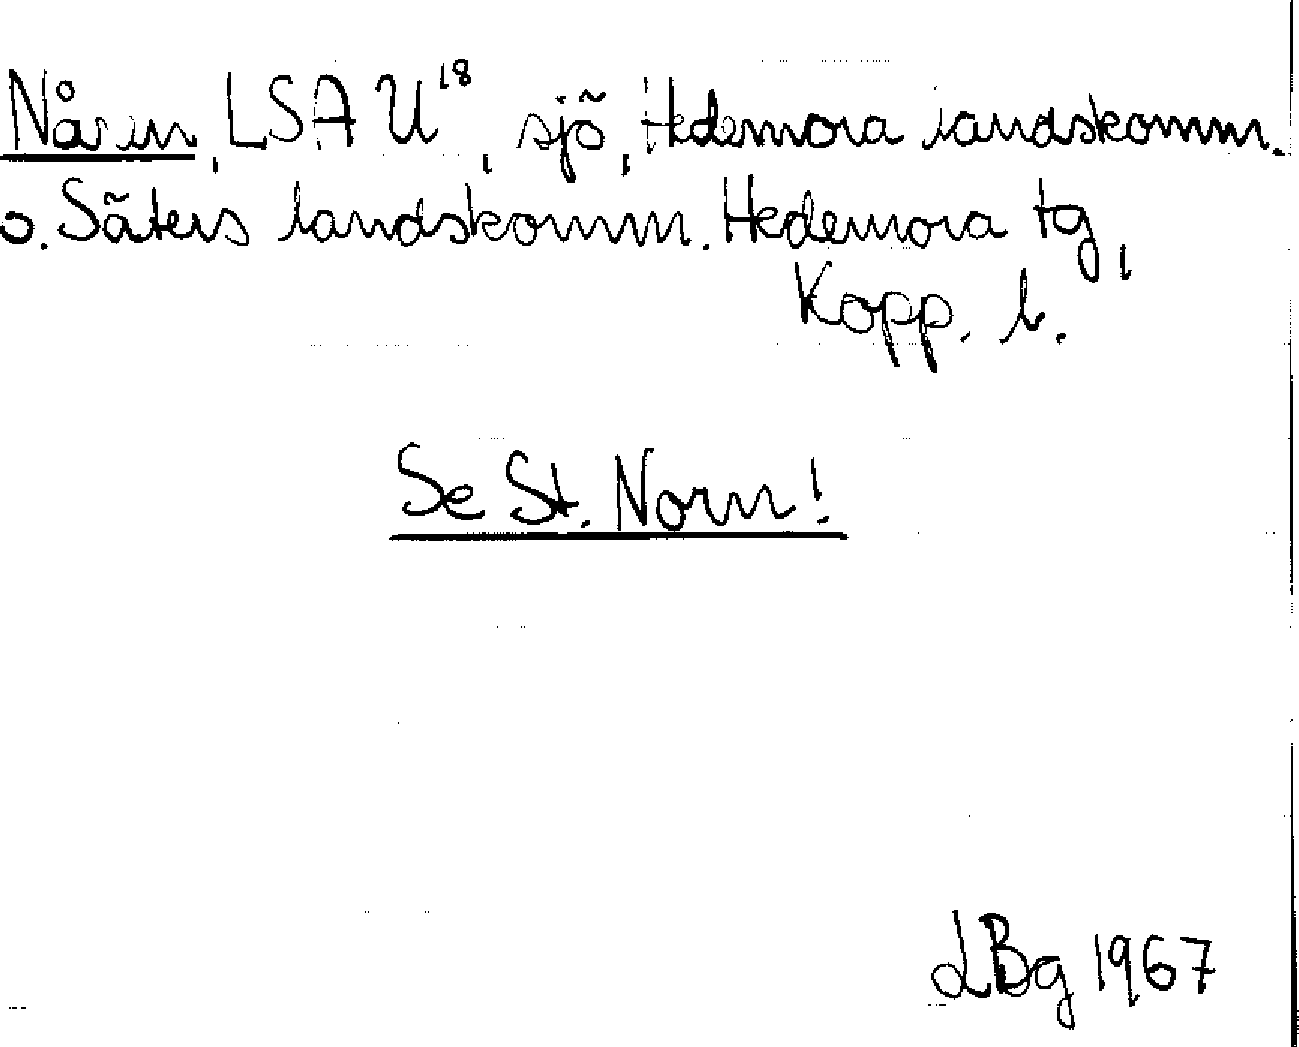 Nåsin, LSA U18, sjö, Hedemora landskomm.
o. Säters landskomm. Hedemora tg,
Kopp. l.
Se St. Norn!
LBg 1967